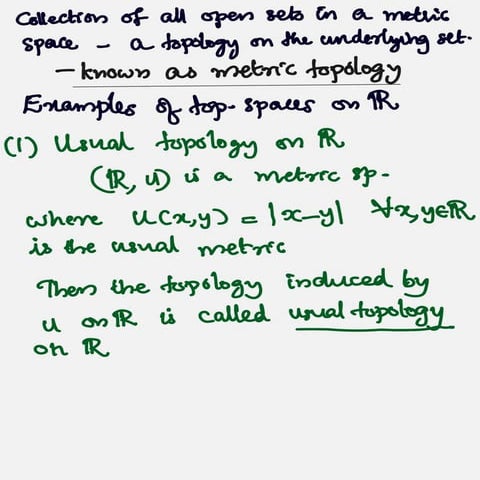 Collection of all open sets in a metric
space – a topology on the underlying set.
– known as metric topology
Examples of top. spaces on ℝ
(1) Usual topology on ℝ
(ℝ, u) is a metric sp.
where u(x,y) = |x–y| ∀x,y∈ℝ
is the usual metric
Then the topology induced by
u on ℝ is called usual topology
on ℝ